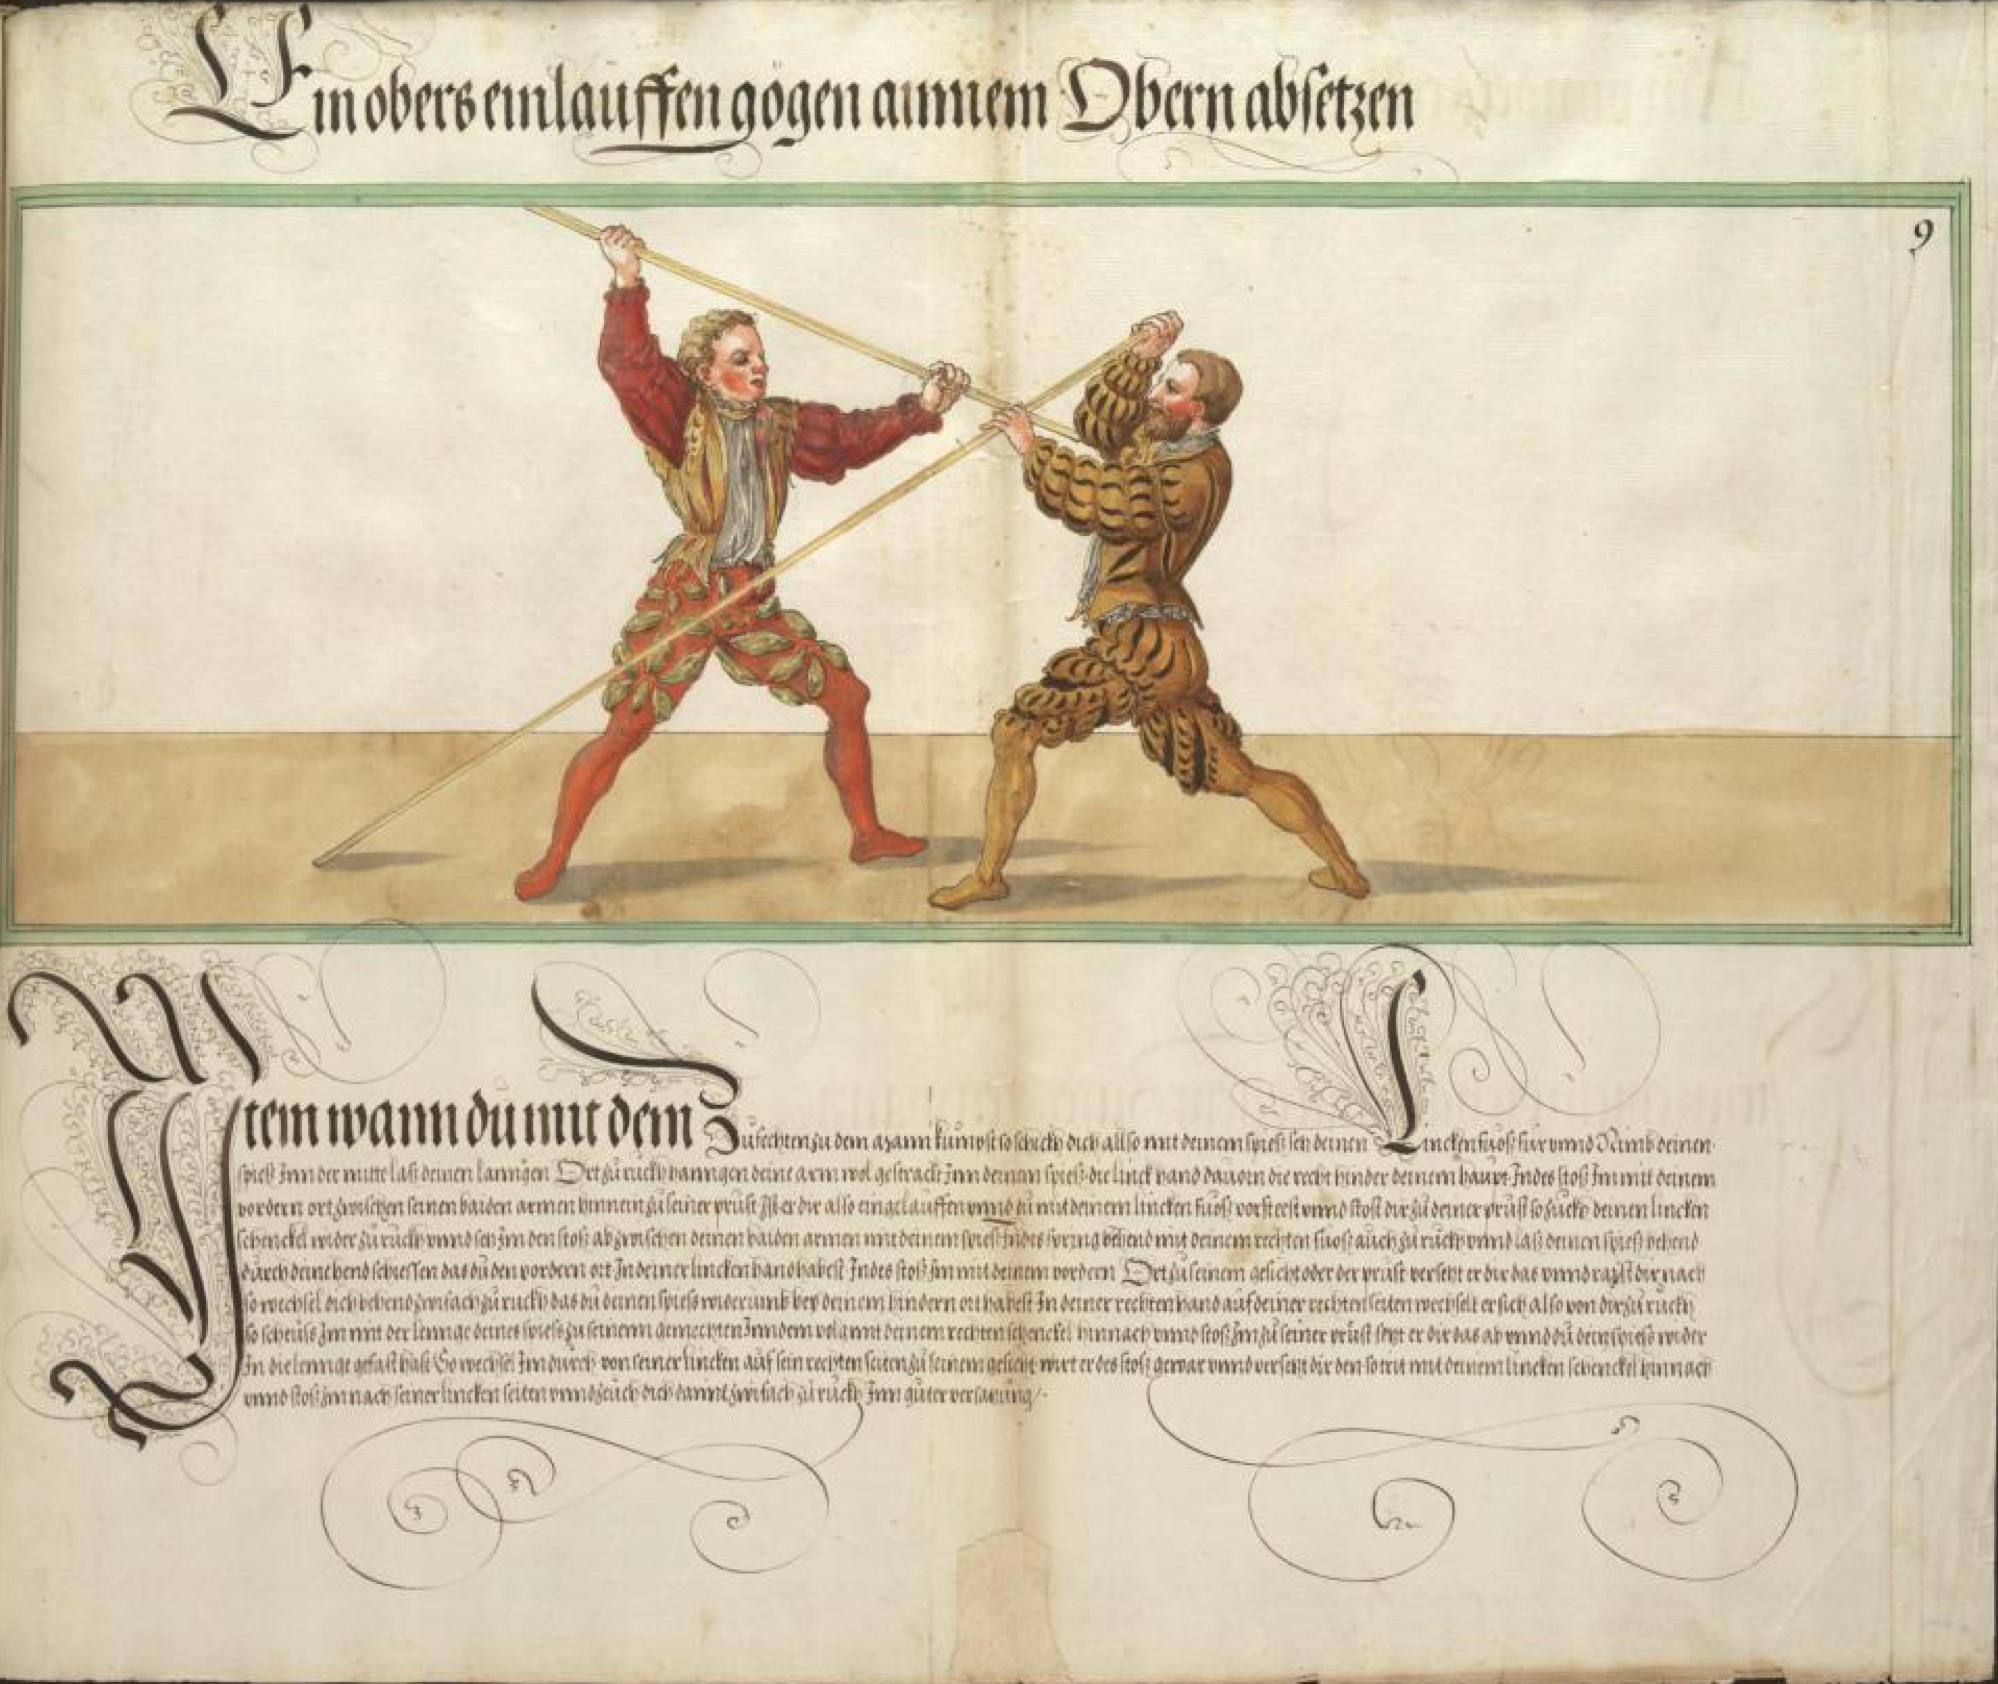 Ein obers einlauffen gögen ainnem Obern absetzen
9
Item wann du mit dem Zufechten zu dem Mann kumbst so schickh dich allso mit deinem spiess setz deinen Lincken fuoss für vnnd Nimb deinen
spiess Inn der mitte lass deinen lanngen Ort zu ruckh hanngen deine arm wol gestrackt Inn deinem spiess die linck hand dauorn die recht hinder deinem haupt Indes stoss Im mit deinem
vordern ort zwischen seinen baiden armen hinnein zu seiner prust Ist er dir allso eingelauffen vnnd du mit deinem lincken fuoss vorsteest vnnd stost dir zu deiner prust so zuckh deinen lincken
schenckel wider zu ruckh vnnd setz Im den stoss ab zwischen deinen baiden armen mit deinem spiess Indes spring behend mit deinem rechten fuoss auch zu ruckh vnnd lass deinen spiess behend
durch deine hend schiessen das du den vordern ort In deiner lincken hand habest Indes stoss Im mit deinem vordern Ort zu seinem gesicht oder der prust versetzt er dir das vnnd raist dir nach
so wechsel dich behend zwifach zu ruckh das du deinen spiess widerumb bey deinem hindern ort habest In deiner rechten hand auf deiner rechten seiten wechselt er sich also von dir zu ruckh
so scheuss Im mit der lennge deines spiess zu seinenn gemechten Inn dem volg mit deinem rechten schenckel hinnach vnnd stoss Im zu seiner prust setzt er dir das ab vnnd du dein spiess wider
In die lennge gefast hast So wechsel Im durch von seiner lincken auf sein rechten seiten zu seinem gesicht wirt er des stoss gewar vnnd versetzt dir den so trit mit deinem lincken schenckel hinnach
vnnd stoss Im nach seiner lincken seiten vnnd zeuch dich damit zwifach zu ruckh Inn guter versatzung